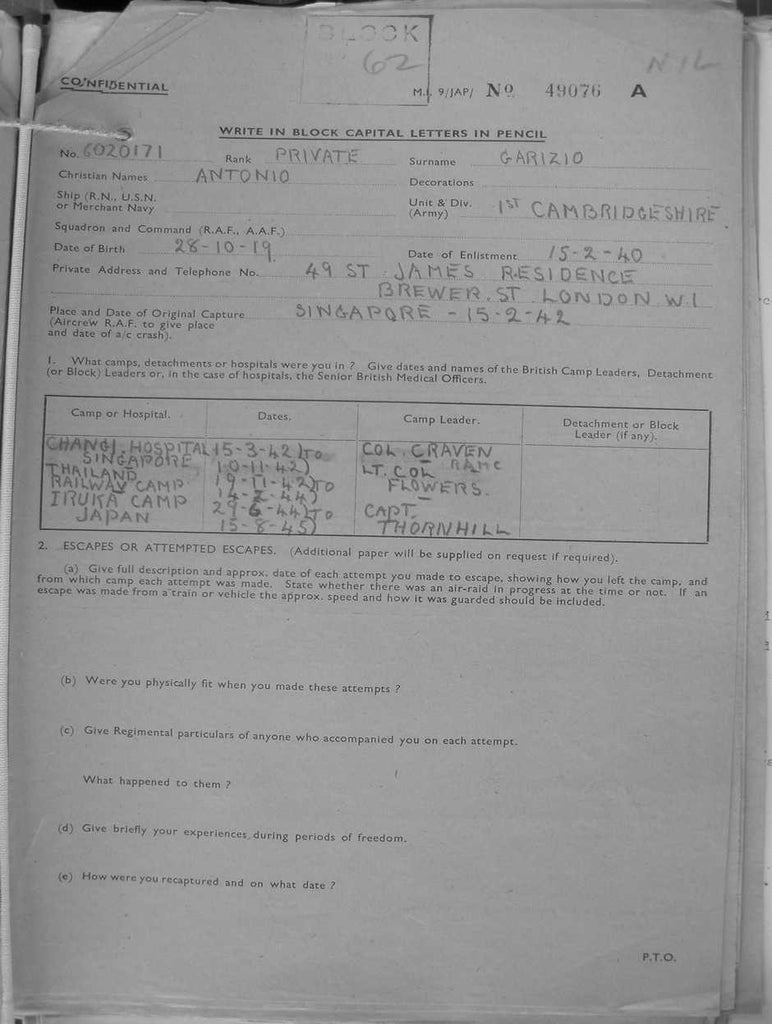 BLOCK
62
NIL
CONFIDENTIAL
M.I. 9/JAP/ No 49076 A
WRITE IN BLOCK CAPITAL LETTERS IN PENCIL
No. 6020171 Rank PRIVATE Surname GARIZIO
Christian Names ANTONIO Decorations
Ship (R.N., U.S.N.
or Merchant Navy
Unit & Div. 1ST CAMBRIDGESHIRE
(Army)
Squadron and Command (R.A.F., A.A.F.)
Date of Birth 28-10-19 Date of Enlistment 15-2-40
Private Address and Telephone No. 49 ST JAMES RESIDENCE
BREWER. ST LONDON W.1
Place and Date of Original Capture SINGAPORE - 15-2-42
(Aircrew R.A.F. to give place
and date of a/c crash).
1. What camps, detachments or hospitals were you in ? Give dates and names of the British Camp Leaders, Detachment
(or Block) Leaders or, in the case of hospitals, the Senior British Medical Officers.
Camp or Hospital. Dates. Camp Leader. Detachment or Block
Leader (if any).
CHANGI. HOSPITAL 15-3-42) TO COL. CRAVEN
SINGAPORE 10-11-42) RAMC
THAILAND 19-11-42) TO LT. COL
RAILWAY CAMP 14-2-44) FLOWERS.
IRUKA CAMP 29-6-44) TO CAPT.
JAPAN 15-8-45) THORNHILL
2. ESCAPES OR ATTEMPTED ESCAPES. (Additional paper will be supplied on request if required).
(a) Give full description and approx. date of each attempt you made to escape, showing how you left the camp, and
from which camp each attempt was made. State whether there was an air-raid in progress at the time or not. If an
escape was made from a train or vehicle the approx. speed and how it was guarded should be included.
(b) Were you physically fit when you made these attempts ?
(c) Give Regimental particulars of anyone who accompanied you on each attempt.
What happened to them ?
(d) Give briefly your experiences during periods of freedom.
(e) How were you recaptured and on what date ?
P.T.O.